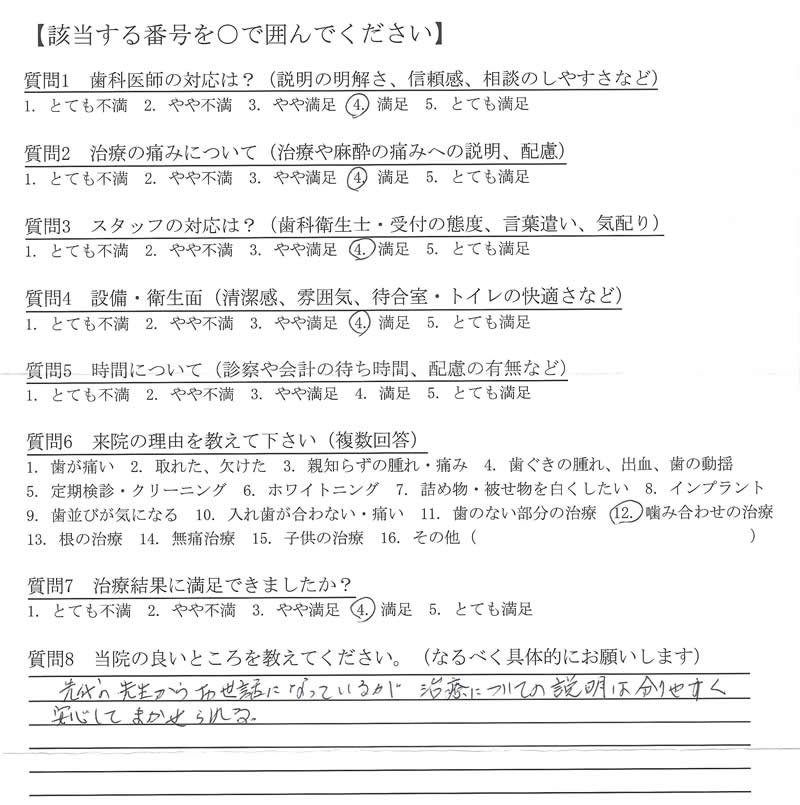 【該当する番号を○で囲んでください】
質問1 歯科医師の対応は？（説明の明解さ、信頼感、相談のしやすさなど）
1. とても不満 2. やや不満 3. やや満足 4. 満足 5. とても満足
質問2 治療の痛みについて（治療や麻酔の痛みへの説明、配慮）
1. とても不満 2. やや不満 3. やや満足 4. 満足 5. とても満足
質問3 スタッフの対応は？（歯科衛生士・受付の態度、言葉遣い、気配り）
1. とても不満 2. やや不満 3. やや満足 4. 満足 5. とても満足
質問4 設備・衛生面（清潔感、雰囲気、待合室・トイレの快適さなど）
1. とても不満 2. やや不満 3. やや満足 4. 満足 5. とても満足
質問5 時間について（診察や会計の待ち時間、配慮の有無など）
1. とても不満 2. やや不満 3. やや満足 4. 満足 5. とても満足
質問6 来院の理由を教えて下さい（複数回答）
1. 歯が痛い 2. 取れた、欠けた 3. 親知らずの腫れ・痛み 4. 歯ぐきの腫れ、出血、歯の動揺
5. 定期検診・クリーニング 6. ホワイトニング 7. 詰め物・被せ物を白くしたい 8. インプラント
9. 歯並びが気になる 10. 入れ歯が合わない・痛い 11. 歯のない部分の治療 12. 噛み合わせの治療
13. 根の治療 14. 無痛治療 15. 子供の治療 16. その他（ ）
質問7 治療結果に満足できましたか？
1. とても不満 2. やや不満 3. やや満足 4. 満足 5. とても満足
質問8 当院の良いところを教えてください。（なるべく具体的にお願いします）
先代の先生からお世話になっているが 治療についての説明は分りやすく
安心してまかせられる。